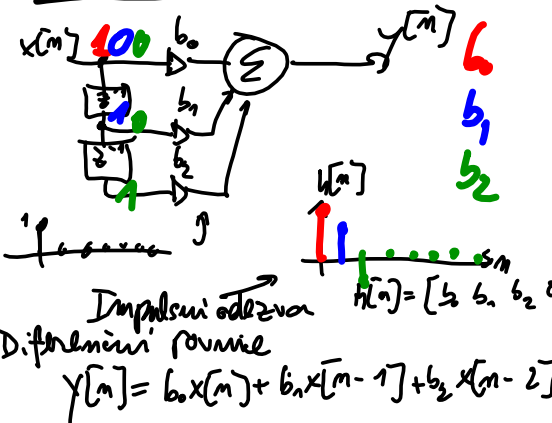 x[n] 100 b₀ Σ y[n] b₀
z⁻¹ 10 b₁ b₁
z⁻¹ 1 b₂ b₂
h[n]
1
n
h[n] = [b₀ b₁ b₂
Impulsní odezva
Diferenční rovnice
y[n] = b₀x[n] + b₁x[n-1] + b₂x[n-2]